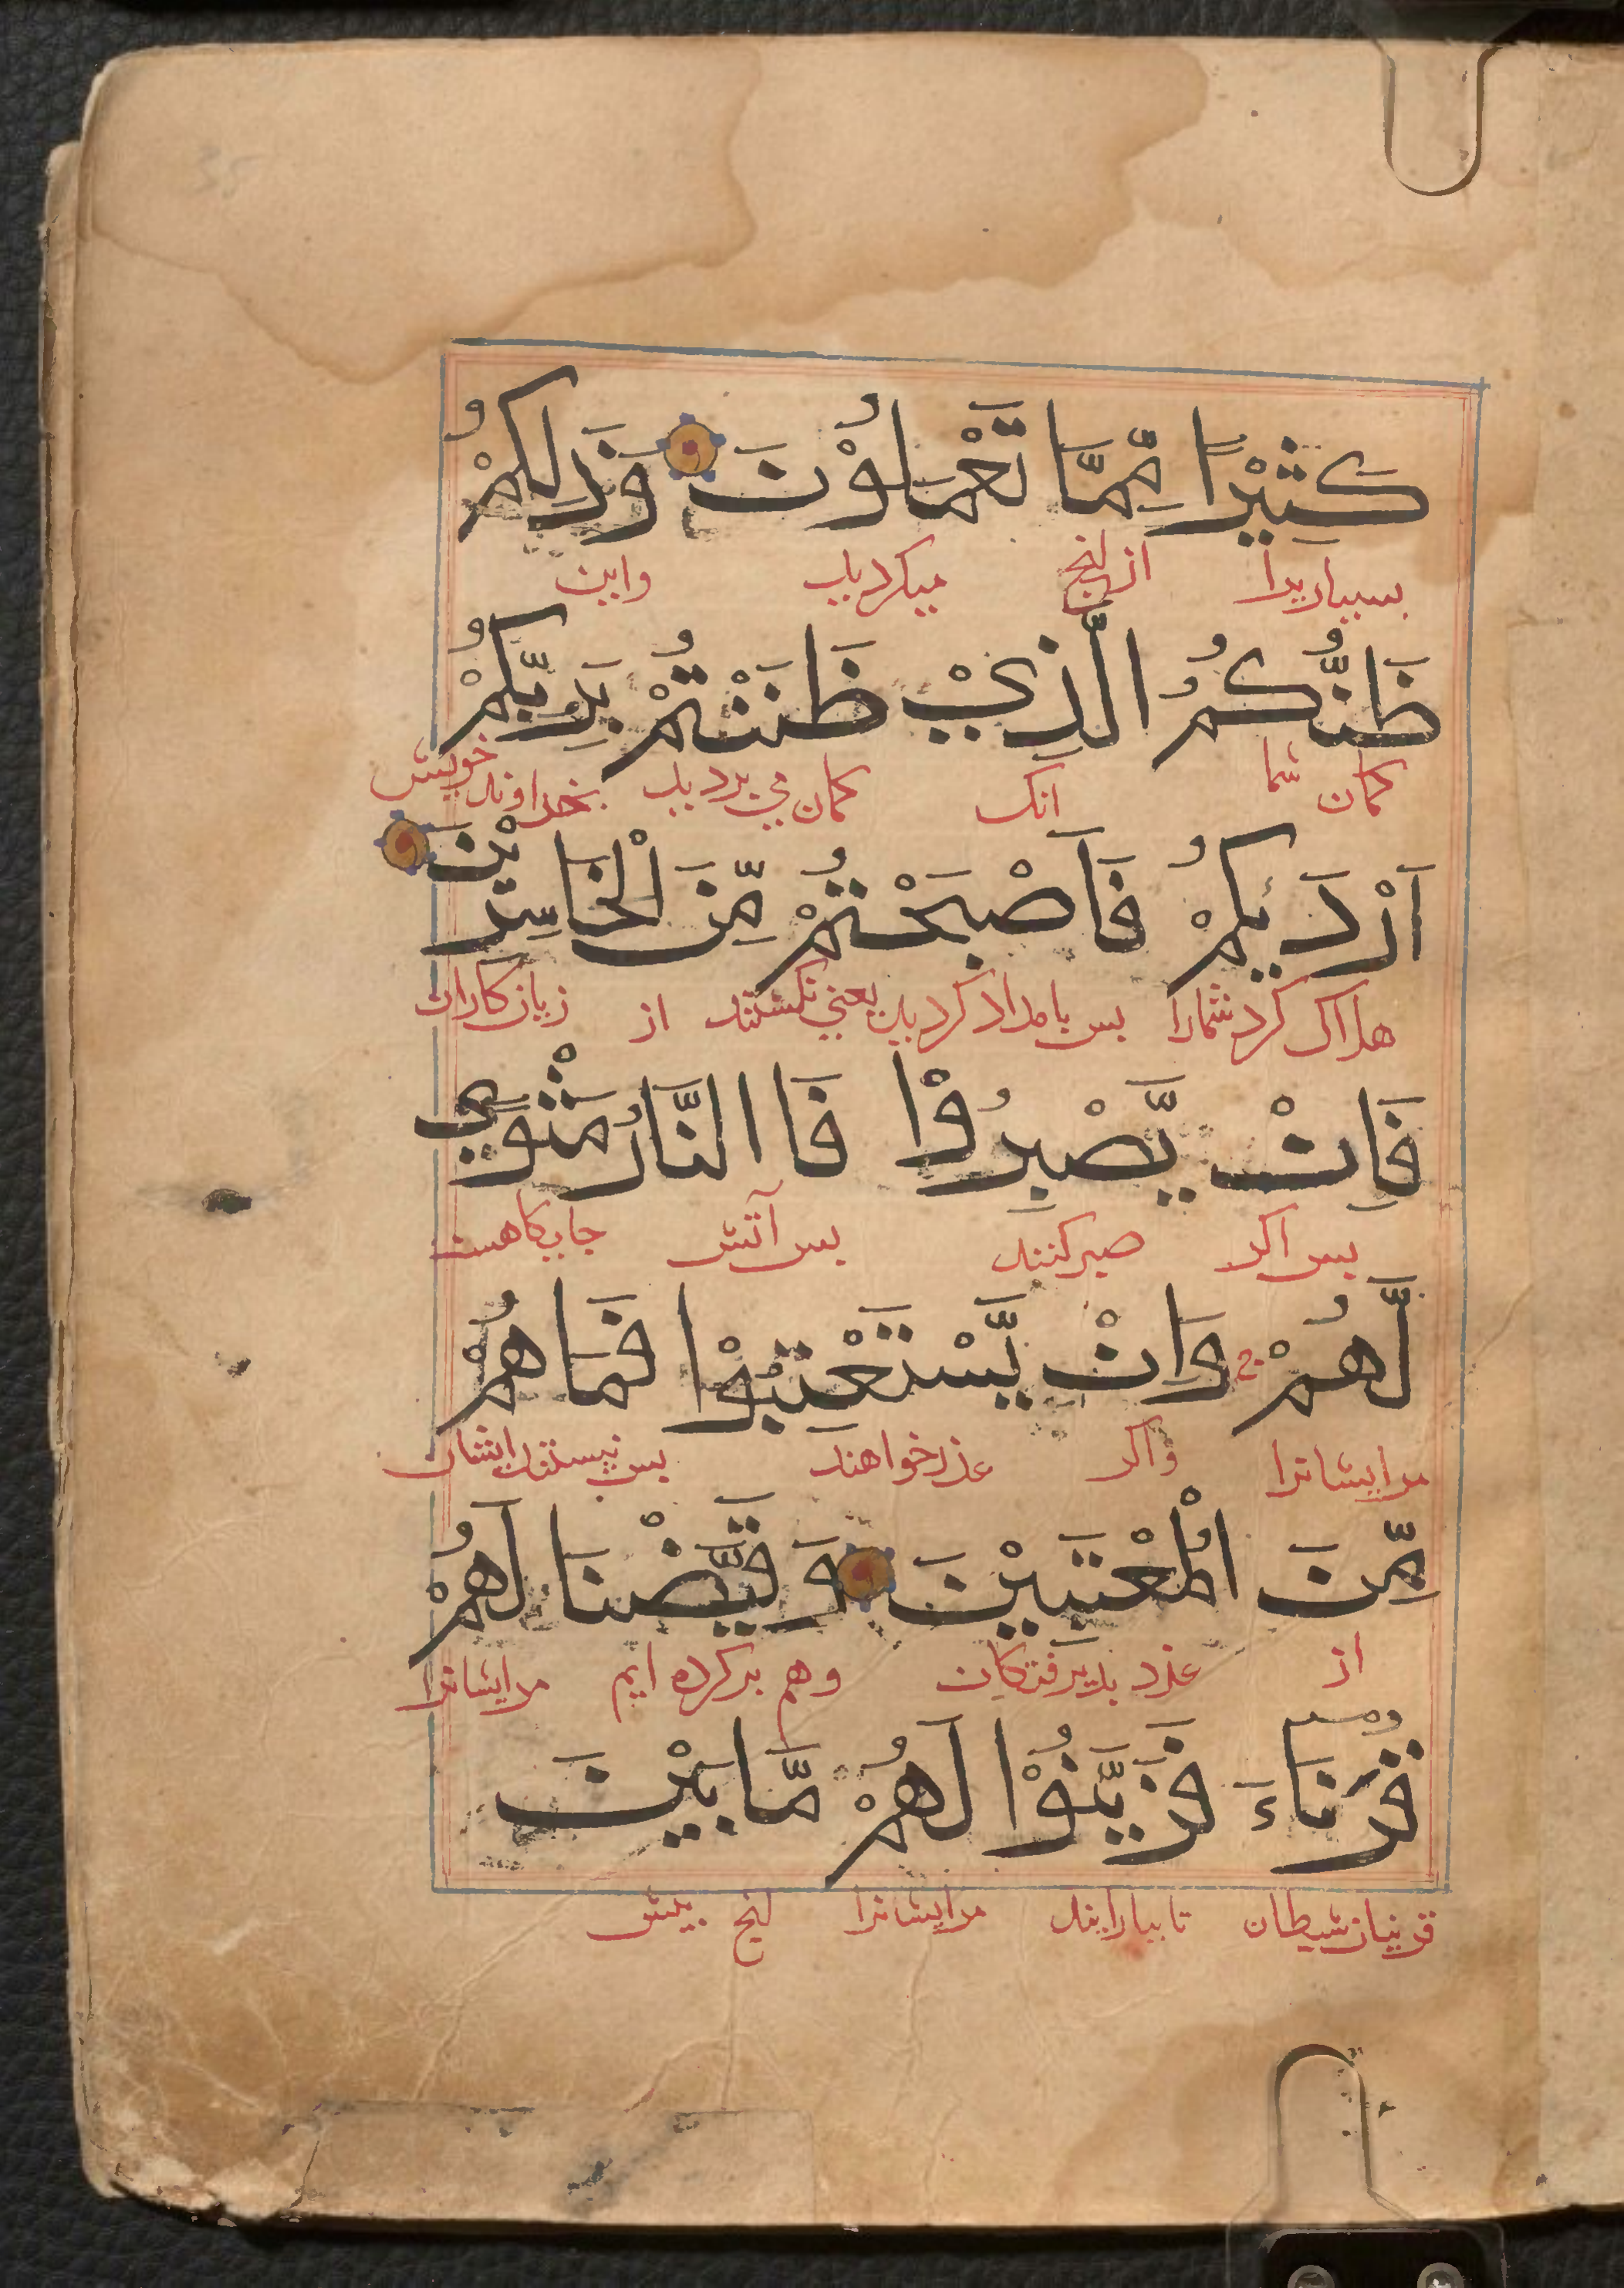 كَثِيْرًا مِّمَّا تَعْمَلُوْنَ وَذَلِكُمْ
بسیاریرا از انچ میکردید واین
ظَنُّكُمُ الَّذِيْ ظَنَنْتُمْ بِرَبِّكُمْ
کمان شما آنک کمان می بردید بخداوند خویش
اَرْدَيكُمْ فَاَصْبَحْتُمْ مِّنَ الْخَاسِرِيْنَ
هلاک کرد شمارا بس بامداد کردید یعنی کشتید از زیان کاران
فَاِنْ يَّصْبِرُوْا فَاالنَّارُ مَثْوًي
بس اکر صبر کنند بس آتش جایکاهست
لَّهُمْ وَاِنْ يَّسْتَعْتِبُوْا فَمَا هُمْ
مرایشانرا واکر عذر خواهند بس نیستند ایشان
مِّنَ الْمُعْتَبِيْنَ وَقَيَّضْنَا لَهُمْ
از عذر بذیرفتکان وهم برکرده ایم مرایشانرا
قُرَنَاءَ فَزَيَّنُوْا لَهُمْ مَّا بَيْنَ
قرینان شیطان تا بیارایند مرایشانرا انچ بیش